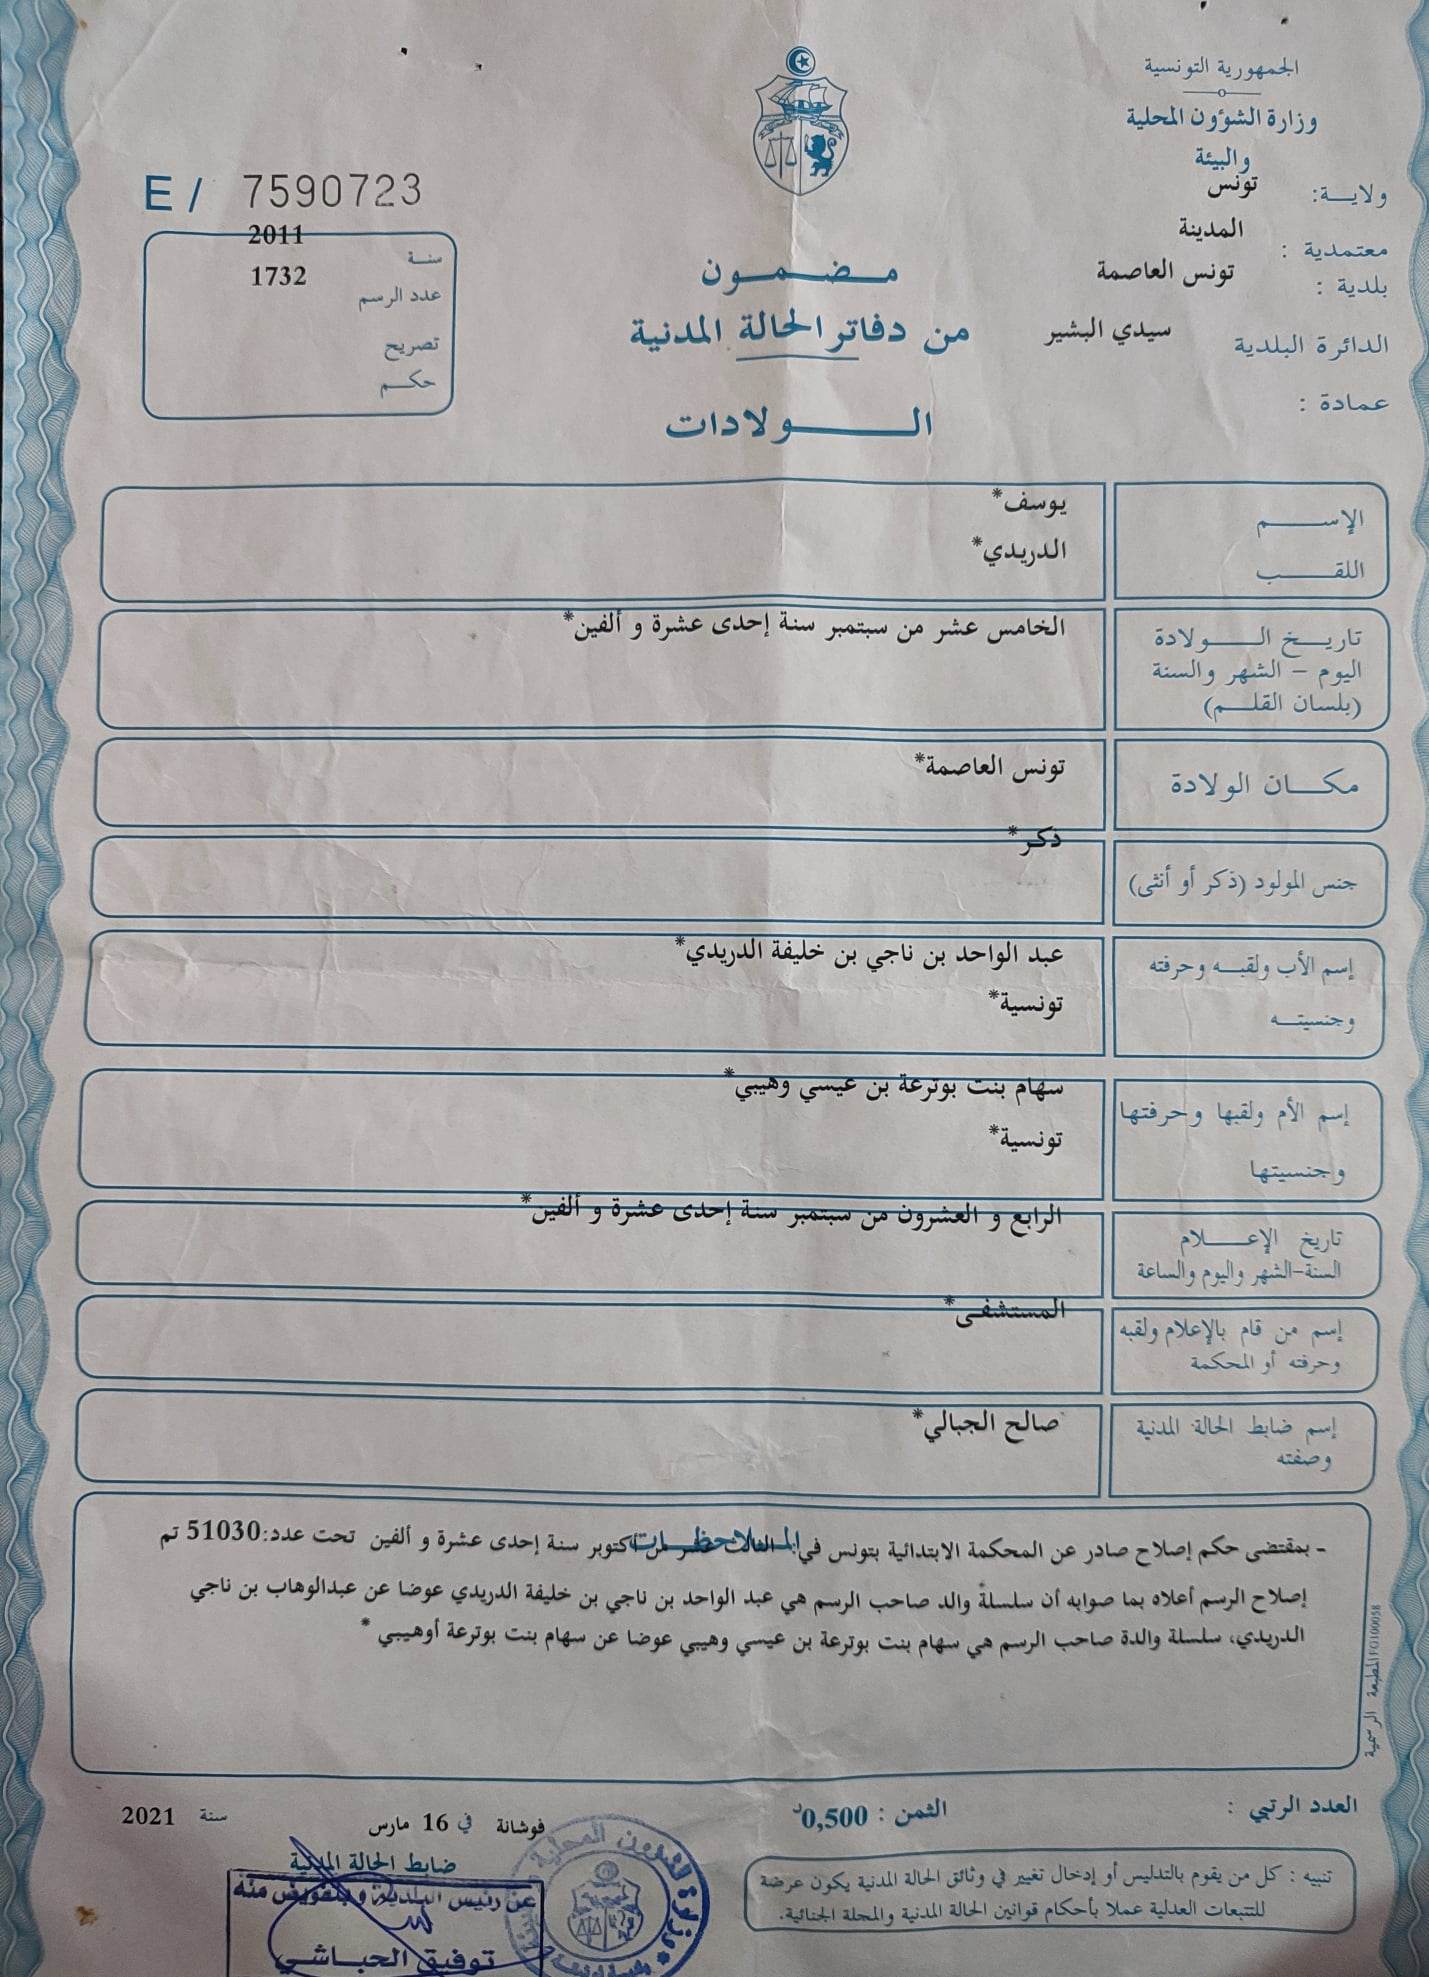 الجمهورية التونسية
وزارة الشؤون المحلية
والبيئة
ولاية: تونس
معتمدية : المدينة
بلدية : تونس العاصمة
الدائرة البلدية سيدي البشير
عمادة :
E / 7590723
سنة 2011
عدد الرسم 1732
تصريح
حكم
مضمون
من دفاتر الحالة المدنية
الولادات
الإسم يوسف*
اللقب الدريدي*
تاريخ الولادة الخامس عشر من سبتمبر سنة إحدى عشرة و ألفين*
اليوم – الشهر والسنة
(بلسان القلم)
مكان الولادة تونس العاصمة*
جنس المولود (ذكر أو أنثى) ذكر*
إسم الأب ولقبه وحرفته عبد الواحد بن ناجي بن خليفة الدريدي*
وجنسيته تونسية*
إسم الأم ولقبها وحرفتها سهام بنت بوترعة بن عيسي وهيبي*
وجنسيتها تونسية*
تاريخ الإعلام الرابع و العشرون من سبتمبر سنة إحدى عشرة و ألفين*
السنة-الشهر واليوم والساعة
إسم من قام بالإعلام ولقبه المستشفى*
وحرفته أو المحكمة
إسم ضابط الحالة المدنية صالح الجبالي*
وصفته
الملاحظات
- بمقتضى حكم إصلاح صادر عن المحكمة الابتدائية بتونس في: الثالث عشر من أكتوبر سنة إحدى عشرة و ألفين تحت عدد:51030 تم
إصلاح الرسم أعلاه بما صوابه أن سلسلة والد صاحب الرسم هي عبد الواحد بن ناجي بن خليفة الدريدي عوضا عن عبدالوهاب بن ناجي
الدريدي، سلسلة والدة صاحب الرسم هي سهام بنت بوترعة بن عيسي وهيبي عوضا عن سهام بنت بوترعة أوهيبي *
المطبعة الرسمية F0100058
العدد الرتبي :
الثمن : 0,500د
فوشانة في 16 مارس سنة 2021
ضابط الحالة المدنية
تنبيه : كل من يقوم بالتدليس أو إدخال تغيير في وثائق الحالة المدنية يكون عرضة
للتتبعات العدلية عملا بأحكام قوانين الحالة المدنية والمجلة الجنائية.
عن رئيس البلدية و بتفويض منه
توفيق الحباشي
وزارة الشؤون المحلية